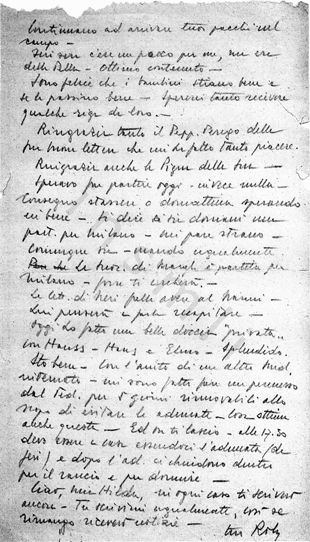 Continuano ad arrivare tuoi pacchi nel
campo -
Ieri sera c'era un pacco per me, ma era
della Pella - Ottimo contenuto -
Sono felice che i bambini stiano bene e
se la passino bene - Spererei tanto ricevere
qualche riga da loro. -
Ringrazia tanto il Rapp. Perego della
sua buona lettera che mi ha fatto tanto piacere.
Ringrazia anche la Pigna della sua -
Speravo far partire oggi - invece nulla -
Consegno stasera o domattina sperando
in bene - Si dice sia domani una
part. per Milano - mi pare strano -
Comunque sia - mando ugualmente
La Pres. di è partita per
Milano - forse ti cercherà. -
Le let. di ieri falle avere al Nanni -
Lui penserà a farle recapitare -
Oggi ho fatto una bella doccia "privata"
con Hanss - Hans e Elmo - Splendido.
Sto bene - Con l'aiuto di un altro Med.
mi sono fatto fare un permesso
dal Ted. per 8 giorni rinnovabili allo
scopo di evitare le adunate - Cosa ottima
anche questa - Ed or ti lascio - alle 17.30
devo essere a casa essendoci l'adunata (de
feri) e dopo l'ad. ci chiudono dentro
per il rancio e per dormire -
Ciao, mia Hilda, in ogni caso ti scriverò
ancora - Tu scrivimi ugualmente, così se
rimango riceverò notizie -
tuo Roby